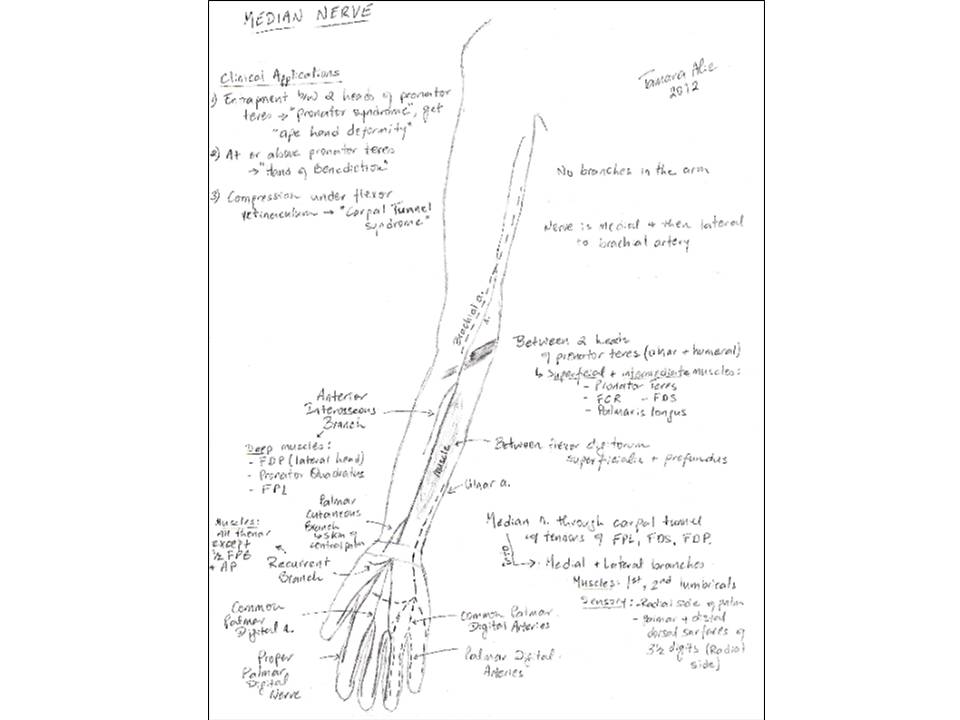 MEDIAN NERVE
Tamara Alie
2012
Clinical Applications
1) Entrapment b/w 2 heads of pronator
teres → "pronator syndrome", get
"ape hand deformity"
2) At or above pronator teres
→ "Hand of Benediction"
3) Compression under flexor
retinaculum → "Carpal Tunnel
Syndrome"
No branches in the arm
Nerve is medial + then lateral
to brachial artery
Brachial a.
Between 2 heads
of pronator teres (ulnar + humeral)
↳ Superficial + intermediate muscles:
- Pronator Teres
- FCR - FDS
- Palmaris longus
Anterior
Interosseous
Branch
Deep muscles:
- FDP (lateral head)
- Pronator Quadratus
- FPL
muscle
Between flexor digitorum
superficialis + profundus
Ulnar a.
Palmar
Cutaneous
Branch
↳ skin of
central palm
Muscles:
All thenar
except
1/2 FPB
+ AP
Recurrent
Branch
Median n. through carpal tunnel
w/ tendons of FPL, FDS, FDP.
→ Medial + Lateral branches
Muscles: 1st, 2nd lumbricals
Sensory: - Radial side of palm
- Palmar + distal
dorsal surfaces of
3½ digits (Radial
side)
Common
Palmar
Digital n.
Common Palmar
Digital Arteries
Proper
Palmar
Digital
Nerve
Palmar Digital
Arteries